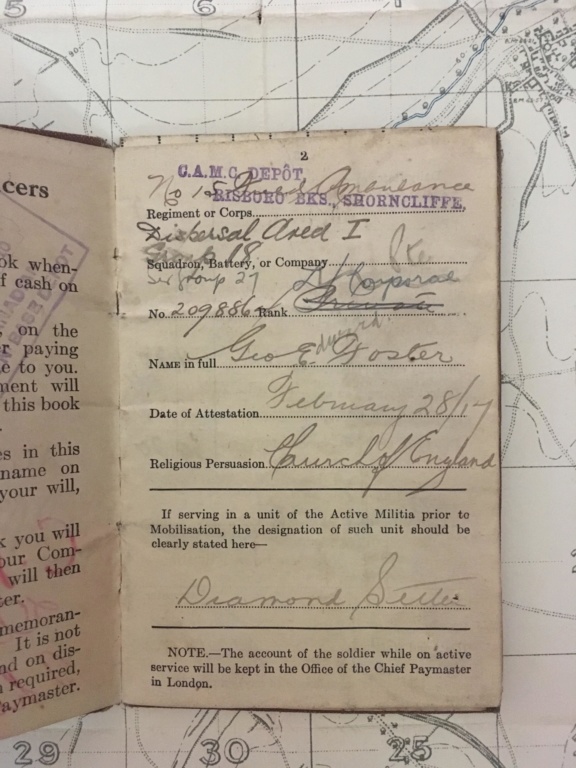 cers
ok when-
f cash on
s on the
r paying
e to you.
ment will
this book
es in this
name on
your will,
k you will
our. Com-
will then
cer.
memoran-
It is not
nd on dis-
required,
aymaster.
BASE DEPOT
2
C.A.M.C. DEPÔT,
RISBORO BKS., SHORNCLIFFE.
No
Regiment or Corps
Dispersal Area I
Squadron, Battery, or Company
group 27
No. 209886 Rank
NAME in full Geo Foster
Date of Attestation February 28/17
Religious Persuasion Church of England
If serving in a unit of the Active Militia prior to
Mobilisation, the designation of such unit should be
clearly stated here—
Diamond
NOTE.—The account of the soldier while on active
service will be kept in the Office of the Chief Paymaster
in London.
29
30
25
5
6